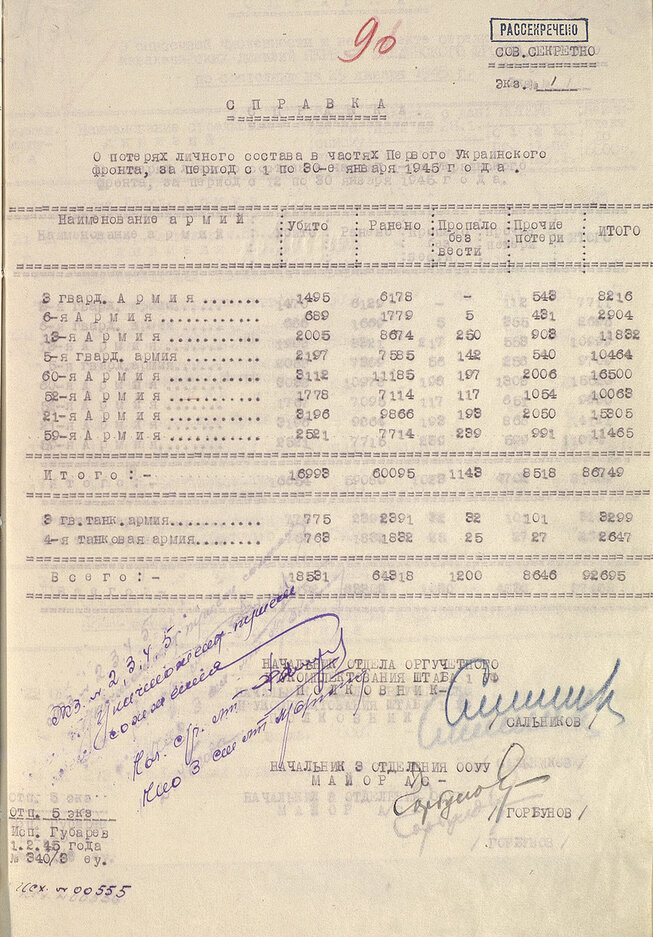 90
РАССЕКРЕЧЕНО
СОВ.СЕКРЕТНО
Экз. № 1
С П Р А В К А
О потерях личного состава в частях Первого Украинского
фронта, за период с 1 по 30-е января 1945 г о д а .
Наименование а р м и й : Убито : Ранено : Пропало без вести : Прочие потери : ИТОГО
3 гвард. А р м и я ........ 1495 6178 - 543 8216
6-я А р м и я ............ 689 1779 5 431 2904
13-я А р м и я ........... 2005 8674 250 903 11832
5-я гвард. армия ......... 2197 7585 142 540 10464
60-я А р м и я ........... 3112 11185 197 2006 16500
52-я А р м и я ........... 1778 7114 117 1054 10063
21-я А р м и я ........... 3196 9866 193 2050 15305
59-я А р м и я ........... 2521 7714 239 991 11465
И т о г о : - 16993 60095 1143 8518 86749
3 гв.танк.армия........... 775 2391 32 101 3299
4-я танковая армия........ 763 1832 25 27 2647
В с е г о : - 18531 64318 1200 8646 92695
Экз. № 2, 3, 4, 5
уничтожены
НАЧАЛЬНИК ОТДЕЛА ОРГУЧЕТНОГО
КОМПЛЕКТОВАНИЯ ШТАБА 1 УФ
П О Л К О В Н И К -
/ САЛЬНИКОВ /
НАЧАЛЬНИК 3 ОТДЕЛЕНИЯ ООУУ
М А Й О Р А/С -
Горбунов
/ ГОРБУНОВ /
Отп. 5 экз
Исп. Губарев
1.2.45 года
№ 340/3 еу.
Исх. № 00555